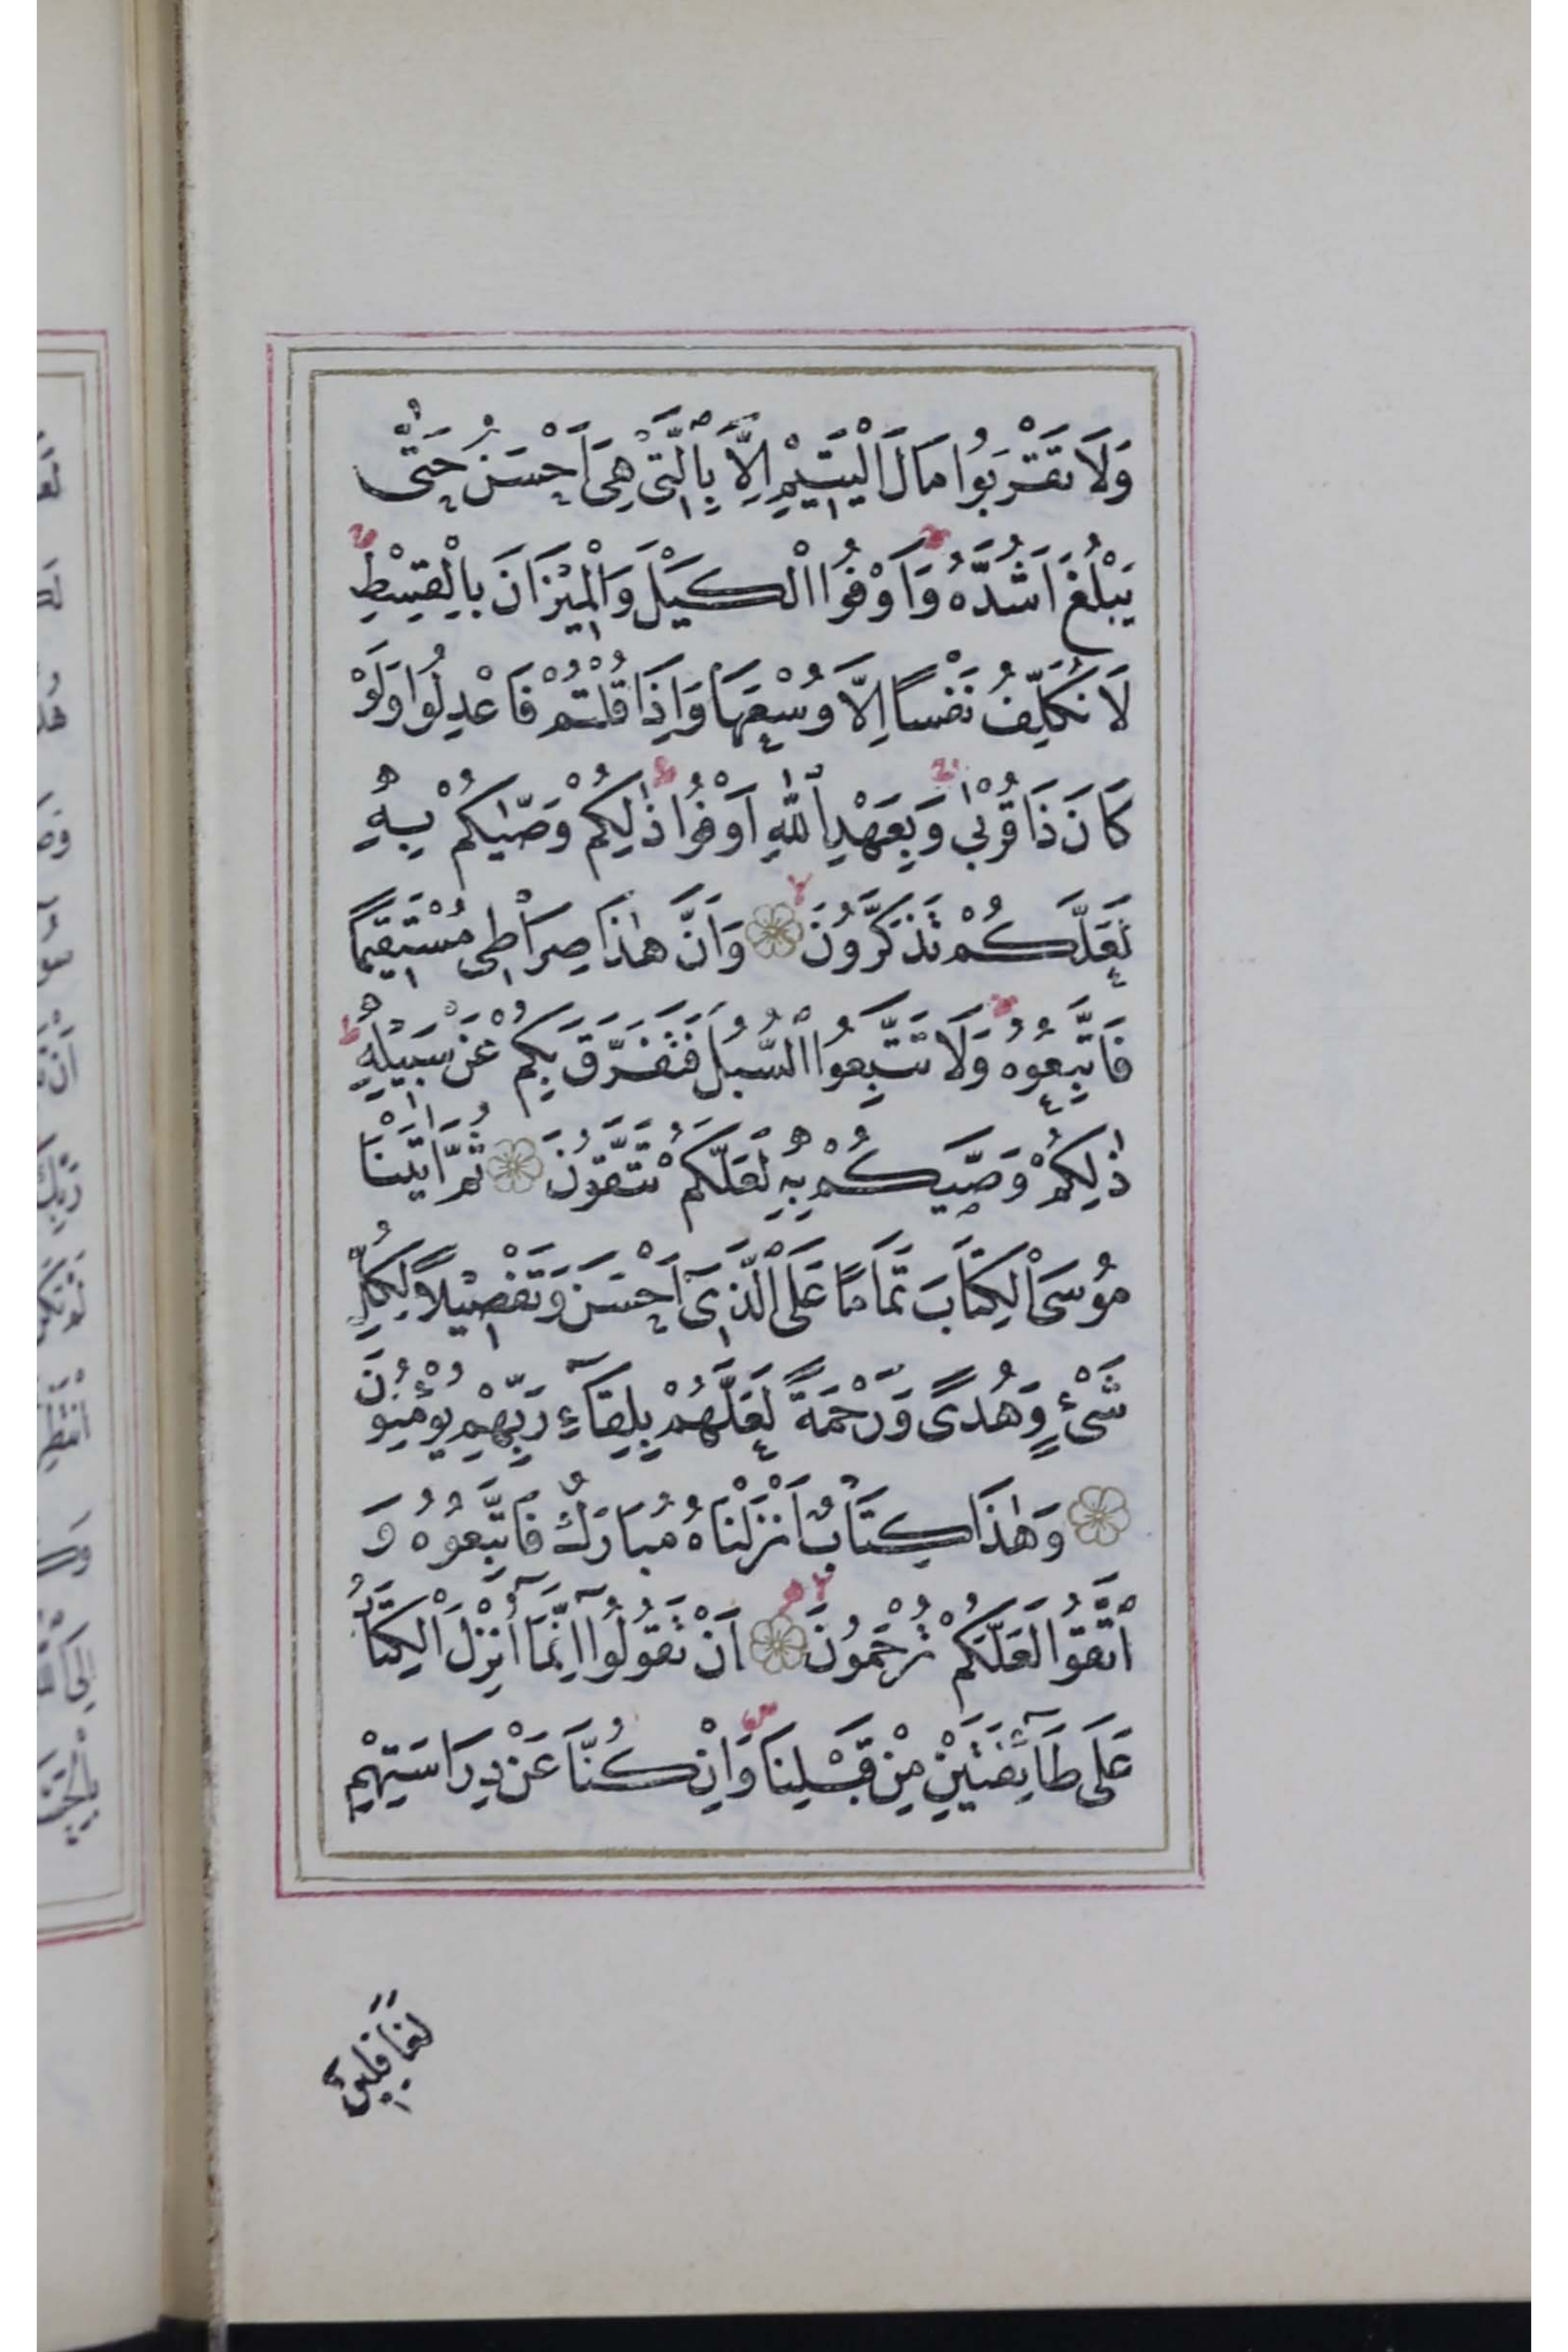 وَلَا تَقْرَبُوا مَالَ الْيَتِيمِ اِلَّا بِالَّتِى هِىَ اَحْسَنُ حَتّٰى
يَبْلُغَ اَشُدَّهُ وَاَوْفُوا الْكَيْلَ وَالْمِيْزَانَ بِالْقِسْطِ ط
لَا نُكَلِّفُ نَفْسًا اِلَّا وُسْعَهَا وَاِذَا قُلْتُمْ فَاعْدِلُوا وَلَوْ
كَانَ ذَا قُرْبٰى وَبِعَهْدِ اللّٰهِ اَوْفُوا ذٰلِكُمْ وَصّٰيكُمْ بِهِ
لَعَلَّكُمْ تَذَكَّرُونَ لا وَاَنَّ هٰذَا صِرَاطِى مُسْتَقِيمًا
فَاتَّبِعُوهُ وَلَا تَتَّبِعُوا السُّبُلَ فَتَفَرَّقَ بِكُمْ عَنْ سَبِيْلِهِ ط
ذٰلِكُمْ وَصّٰيكُمْ بِهِ لَعَلَّكُمْ تَتَّقُونَ ثُمَّ اٰتَيْنَا
مُوسَى الْكِتَابَ تَمَامًا عَلَى الَّذِىٓ اَحْسَنَ وَتَفْصِيْلًا لِكُلِّ
شَىْءٍ وَهُدًى وَرَحْمَةً لَعَلَّهُمْ بِلِقَٓاءِ رَبِّهِمْ يُؤْمِنُونَ
وَهٰذَا كِتَابٌ اَنْزَلْنَاهُ مُبَارَكٌ فَاتَّبِعُوهُ وَ
اتَّقُوا لَعَلَّكُمْ تُرْحَمُونَ لا اَنْ تَقُولُوٓا اِنَّمَٓا اُنْزِلَ الْكِتَابُ
عَلَى طَٓائِفَتَيْنِ مِنْ قَبْلِنَا وَاِنْ كُنَّا عَنْ دِرَاسَتِهِمْ
لَغَافِلِينَ